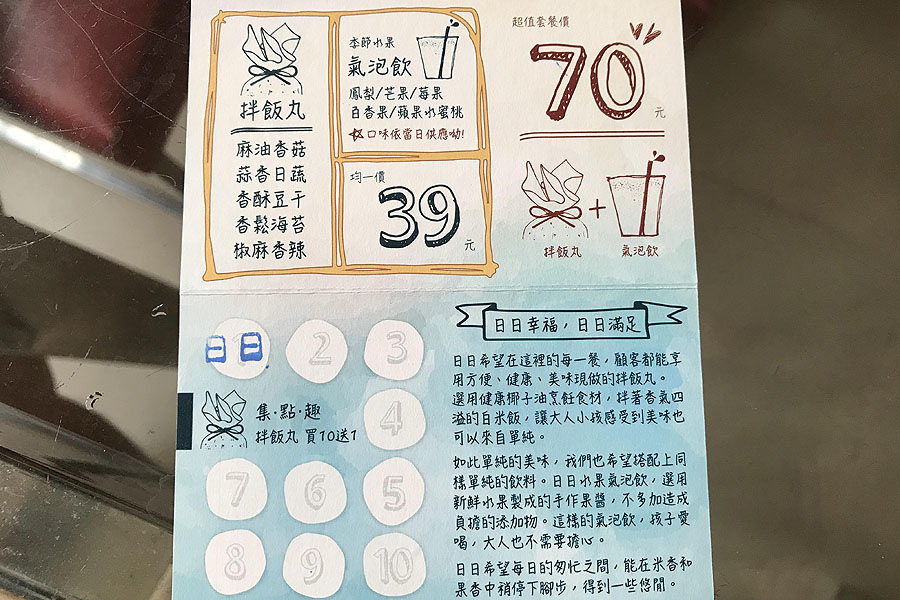 拌飯丸
麻油香菇
蒜香日蔬
香酥豆干
香鬆海苔
椒麻香辣
季節水果
氣泡飲
鳳梨/芒果/莓果
百香果/蘋果水蜜桃
口味依當日供應呦!
均一價
39元
超值套餐價
70元
拌飯丸
+
氣泡飲
日日
2
3
集·點·趣
拌飯丸 買10送1
4
7
6
5
8
9
10
日日幸福,日日滿足
日日希望在這裡的每一餐,顧客都能享
用方便、健康、美味現做的拌飯丸。
選用健康椰子油烹飪食材,拌著香氣四
溢的白米飯,讓大人小孩感受到美味也
可以來自單純。
如此單純的美味,我們也希望搭配上同
樣單純的飲料。日日水果氣泡飲,選用
新鮮水果製成的手作果醬,不多加造成
負擔的添加物。這樣的氣泡飲,孩子愛
喝,大人也不需要擔心。
日日希望每日的匆忙之間,能在米香和
果香中稍停下腳步,得到一些悠閒。